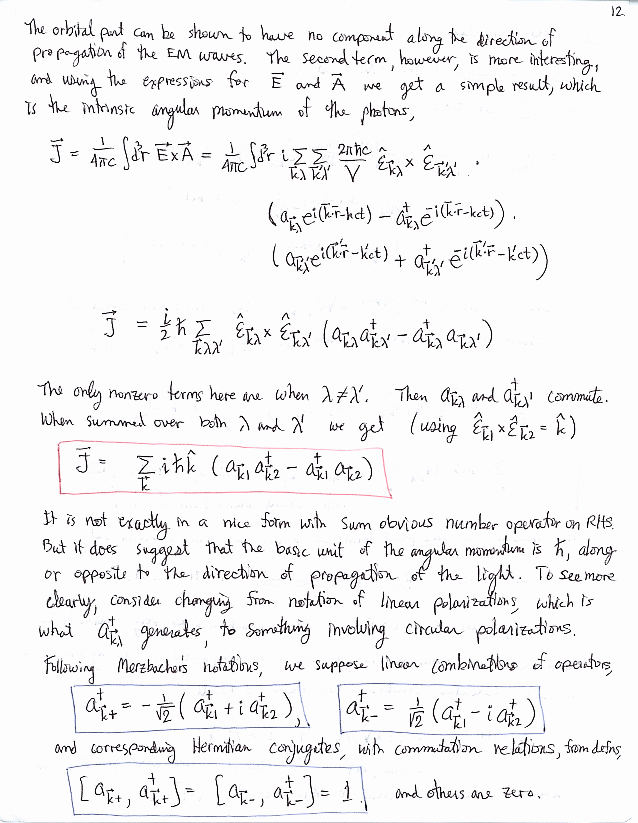 12
The orbital part can be shown to have no component along the direction of
propagation of the EM waves. The second term, however, is more interesting,
and using the expressions for E⃗ and A⃗ we get a simple result, which
is the intrinsic angular momentum of the photons,
J⃗ = 1/4πc ∫d³r E⃗×A⃗ = 1/4πc ∫d³r i Σ_k⃗λ Σ_k⃗'λ' 2πħc/V ε̂_k⃗λ × ε̂_k⃗'λ' ·
(a_k⃗λ e^i(k⃗·r⃗-kct) − a†_k⃗λ e^-i(k⃗·r⃗-kct)) ·
(a_k⃗'λ' e^i(k⃗'·r⃗-k'ct) + a†_k⃗'λ' e^-i(k⃗'·r⃗-k'ct))
J⃗ = i/2 ħ Σ_k⃗λλ' ε̂_k⃗λ × ε̂_k⃗λ' (a_k⃗λ a†_k⃗λ' − a†_k⃗λ a_k⃗λ')
The only nonzero terms here are when λ≠λ'. Then a_k⃗λ and a†_k⃗λ' commute.
When summed over both λ and λ' we get (using ε̂_k⃗1 × ε̂_k⃗2 = k̂)
J⃗ = Σ_k⃗ iħk̂ (a_k⃗1 a†_k⃗2 − a†_k⃗1 a_k⃗2)
It is not exactly in a nice form with sum obvious number operator on RHS.
But it does suggest that the basic unit of the angular momentum is ħ, along
or opposite to the direction of propagation of the light. To see more
clearly, consider changing from notation of linear polarizations, which is
what a†_k⃗λ generates, to something involving circular polarizations.
Following Merzbacher's notations, we suppose linear combinations of operators,
a†_k⃗+ = −1/√2 (a†_k⃗1 + i a†_k⃗2), a†_k⃗- = 1/√2 (a†_k⃗1 − i a†_k⃗2)
and corresponding Hermitian conjugates, with commutation relations, from defns,
[a_k⃗+, a†_k⃗+] = [a_k⃗-, a†_k⃗-] = 1. and others are zero.